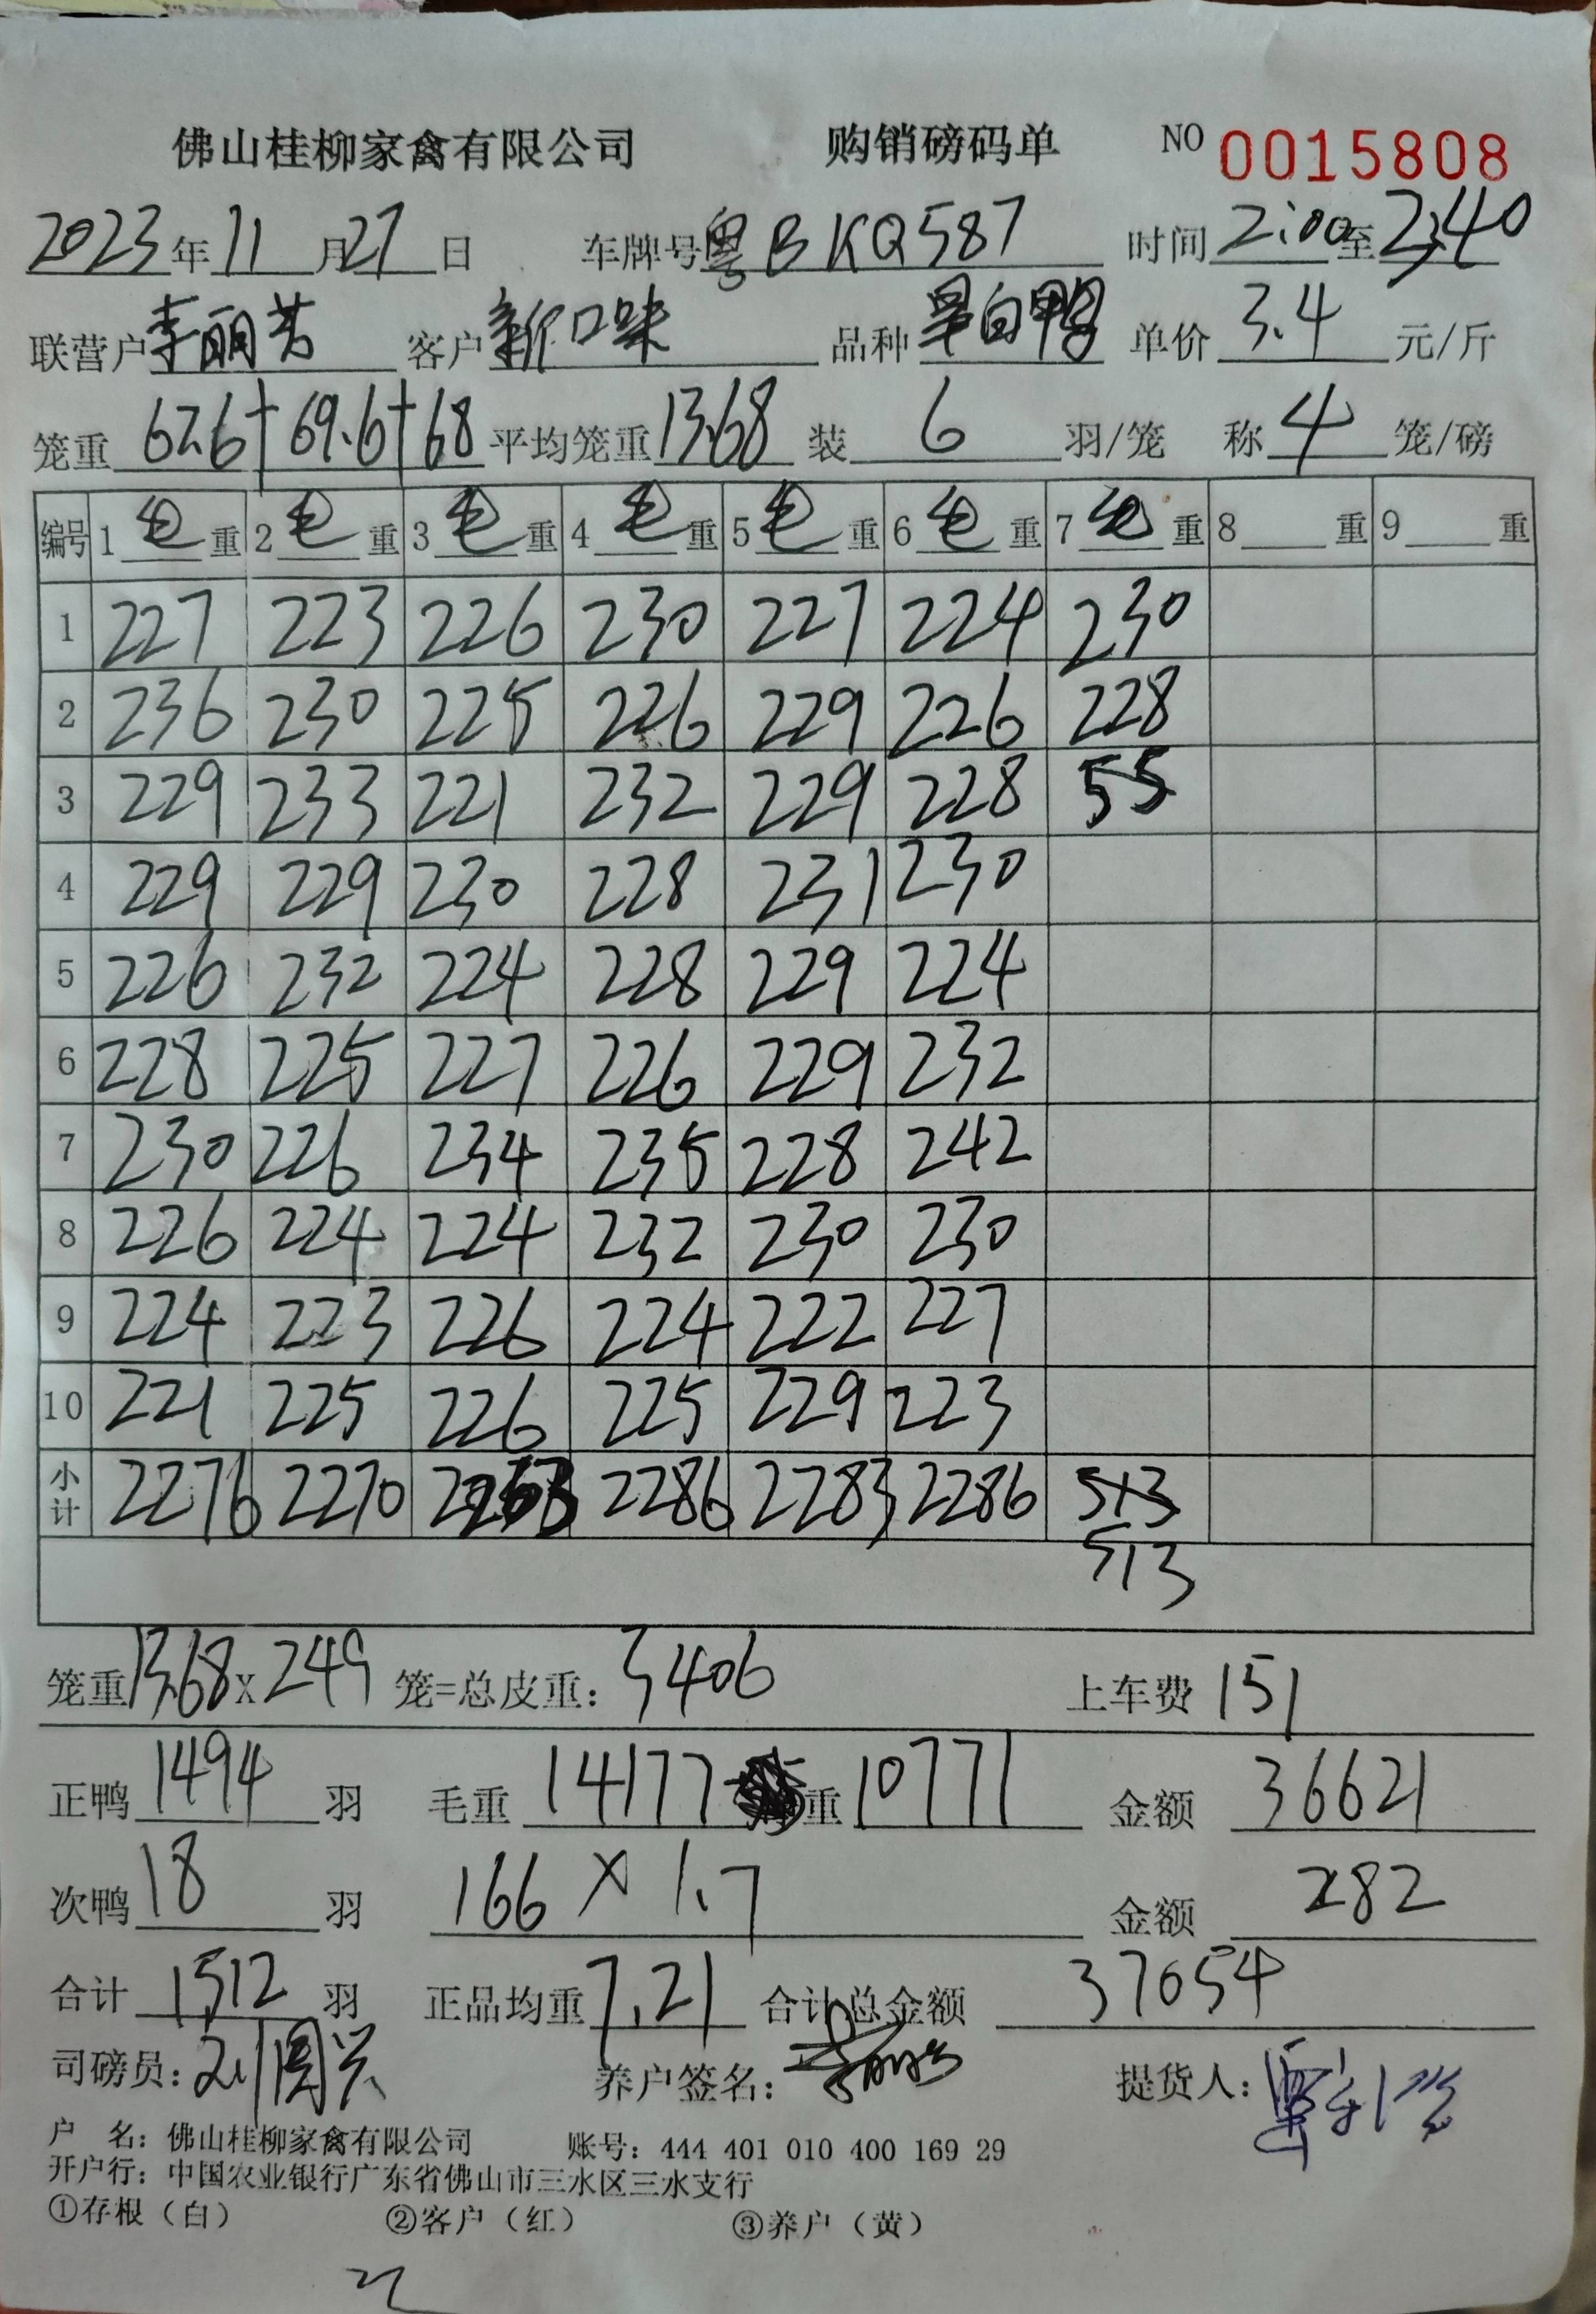 佛山桂柳家禽有限公司 购销磅码单 NO 0015808
2023年11月27日 车牌号粤BKQ587 时间2:00至2:40
联营户李丽芳 客户新口味 品种 白鸭 单价3.4元/斤
笼重67.6+69.6+68 平均笼重13.68 装6羽/笼 称4笼/磅
编号 1毛重 2毛重 3毛重 4毛重 5毛重 6毛重 7毛重 8重 9重
1 227 223 226 230 227 224 230
2 236 230 225 226 229 226 228
3 229 233 221 232 229 228 55
4 229 229 230 228 231 230
5 226 232 224 228 229 224
6 228 225 227 226 229 232
7 230 226 234 235 228 242
8 226 224 224 232 230 230
9 224 223 226 224 222 227
10 221 225 226 225 229 223
小计 2276 2270 2263 2286 2283 2286 513
513
笼重13.68X249笼=总皮重：3406 上车费151
正鸭1494羽 毛重14177 重10771 金额36621
次鸭18羽 166×1.7 金额282
合计1512羽 正品均重7.21 合计总金额37054
司磅员：刘国兴 养户签名： 提货人：
户 名：佛山桂柳家禽有限公司 账号：444 401 010 400 169 29
开户行：中国农业银行广东省佛山市三水区三水支行
①存根（白） ②客户（红） ③养户（黄）